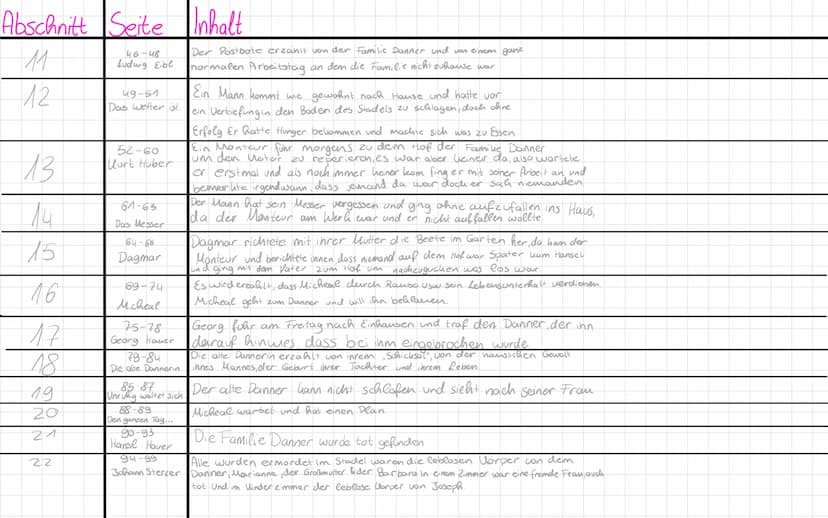 Abschnitt Seite Inhalt
11 46-48 Ludwig Eibl Der Postbote erzählt von der Familie Danner und von einem ganz
normalen Arbeitstag an dem die Familie nicht zuhause war
12 49-51 Das Wetter ist Ein Mann kommt wie gewohnt nach Hause und hatte vor
ein Vertiefung in den Boden des Stadels zu schlagen, doch ohne
Erfolg Er hatte Hunger bekommen und machte sich was zu Essen
13 52-60 Kurt Huber Ein Monteur fuhr morgens zu dem Hof der Familie Danner
um den Motor zu reperieren, es war aber keiner da, also wartete
er erstmal und als noch immer keiner kam fing er mit seiner Arbeit an und
bemerkte irgendwann, dass jemand da war doch er sah niemanden
14 61-63 Das Messer Der Mann hat sein Messer vergessen und ging ohne aufzufallen ins Haus,
da der Monteur am Werk war und er nicht auffallen wollte
15 64-66 Dagmar Dagmar richtete mit ihrer Mutter die Beete im Garten her, da kam der
Monteur und berichtete innen, dass niemand auf dem Hof war Später kam Hansel
und ging mit dem Vater zum Hof um nachzugucken was los war
16 69-74 Micheal Es wird erzählt, dass Micheal durch Raube usw sein Lebensunterhalt verdienen
Micheal geht zum Danner und will ihn beklauen
17 75-78 Georg Hauer Georg fuhr am Freitag nach Einhausen und traf den Danner, der ihn
darauf hinwies, dass bei ihm eingebrochen wurde
18 79-84 Die alte Dannerin Die alte Dannerin erzählt von ihrem „Schicksal", von der häuslichen Gewalt
ihres Mannes, der Geburt ihrer Tochter und ihrem Leben
19 85-87 Unruhig wälzt er sich Der alte Danner kann nicht schlafen und sieht nach seiner Frau
20 88-89 Den ganzen Tag... Micheal wartet und hat einen Plan
21 90-93 Hansl Hauer Die Familie Danner wurde tot gefunden
22 94-99 Johann Sterzer Alle wurden ermordet im Stadel waren die leblosen Körper von dem
Danner, Marianne, der Großmutter & der Barbara in einem Zimmer war eine fremde Frau, auch
tot Und im Kinderzimmer der leblose Körper von Joseph